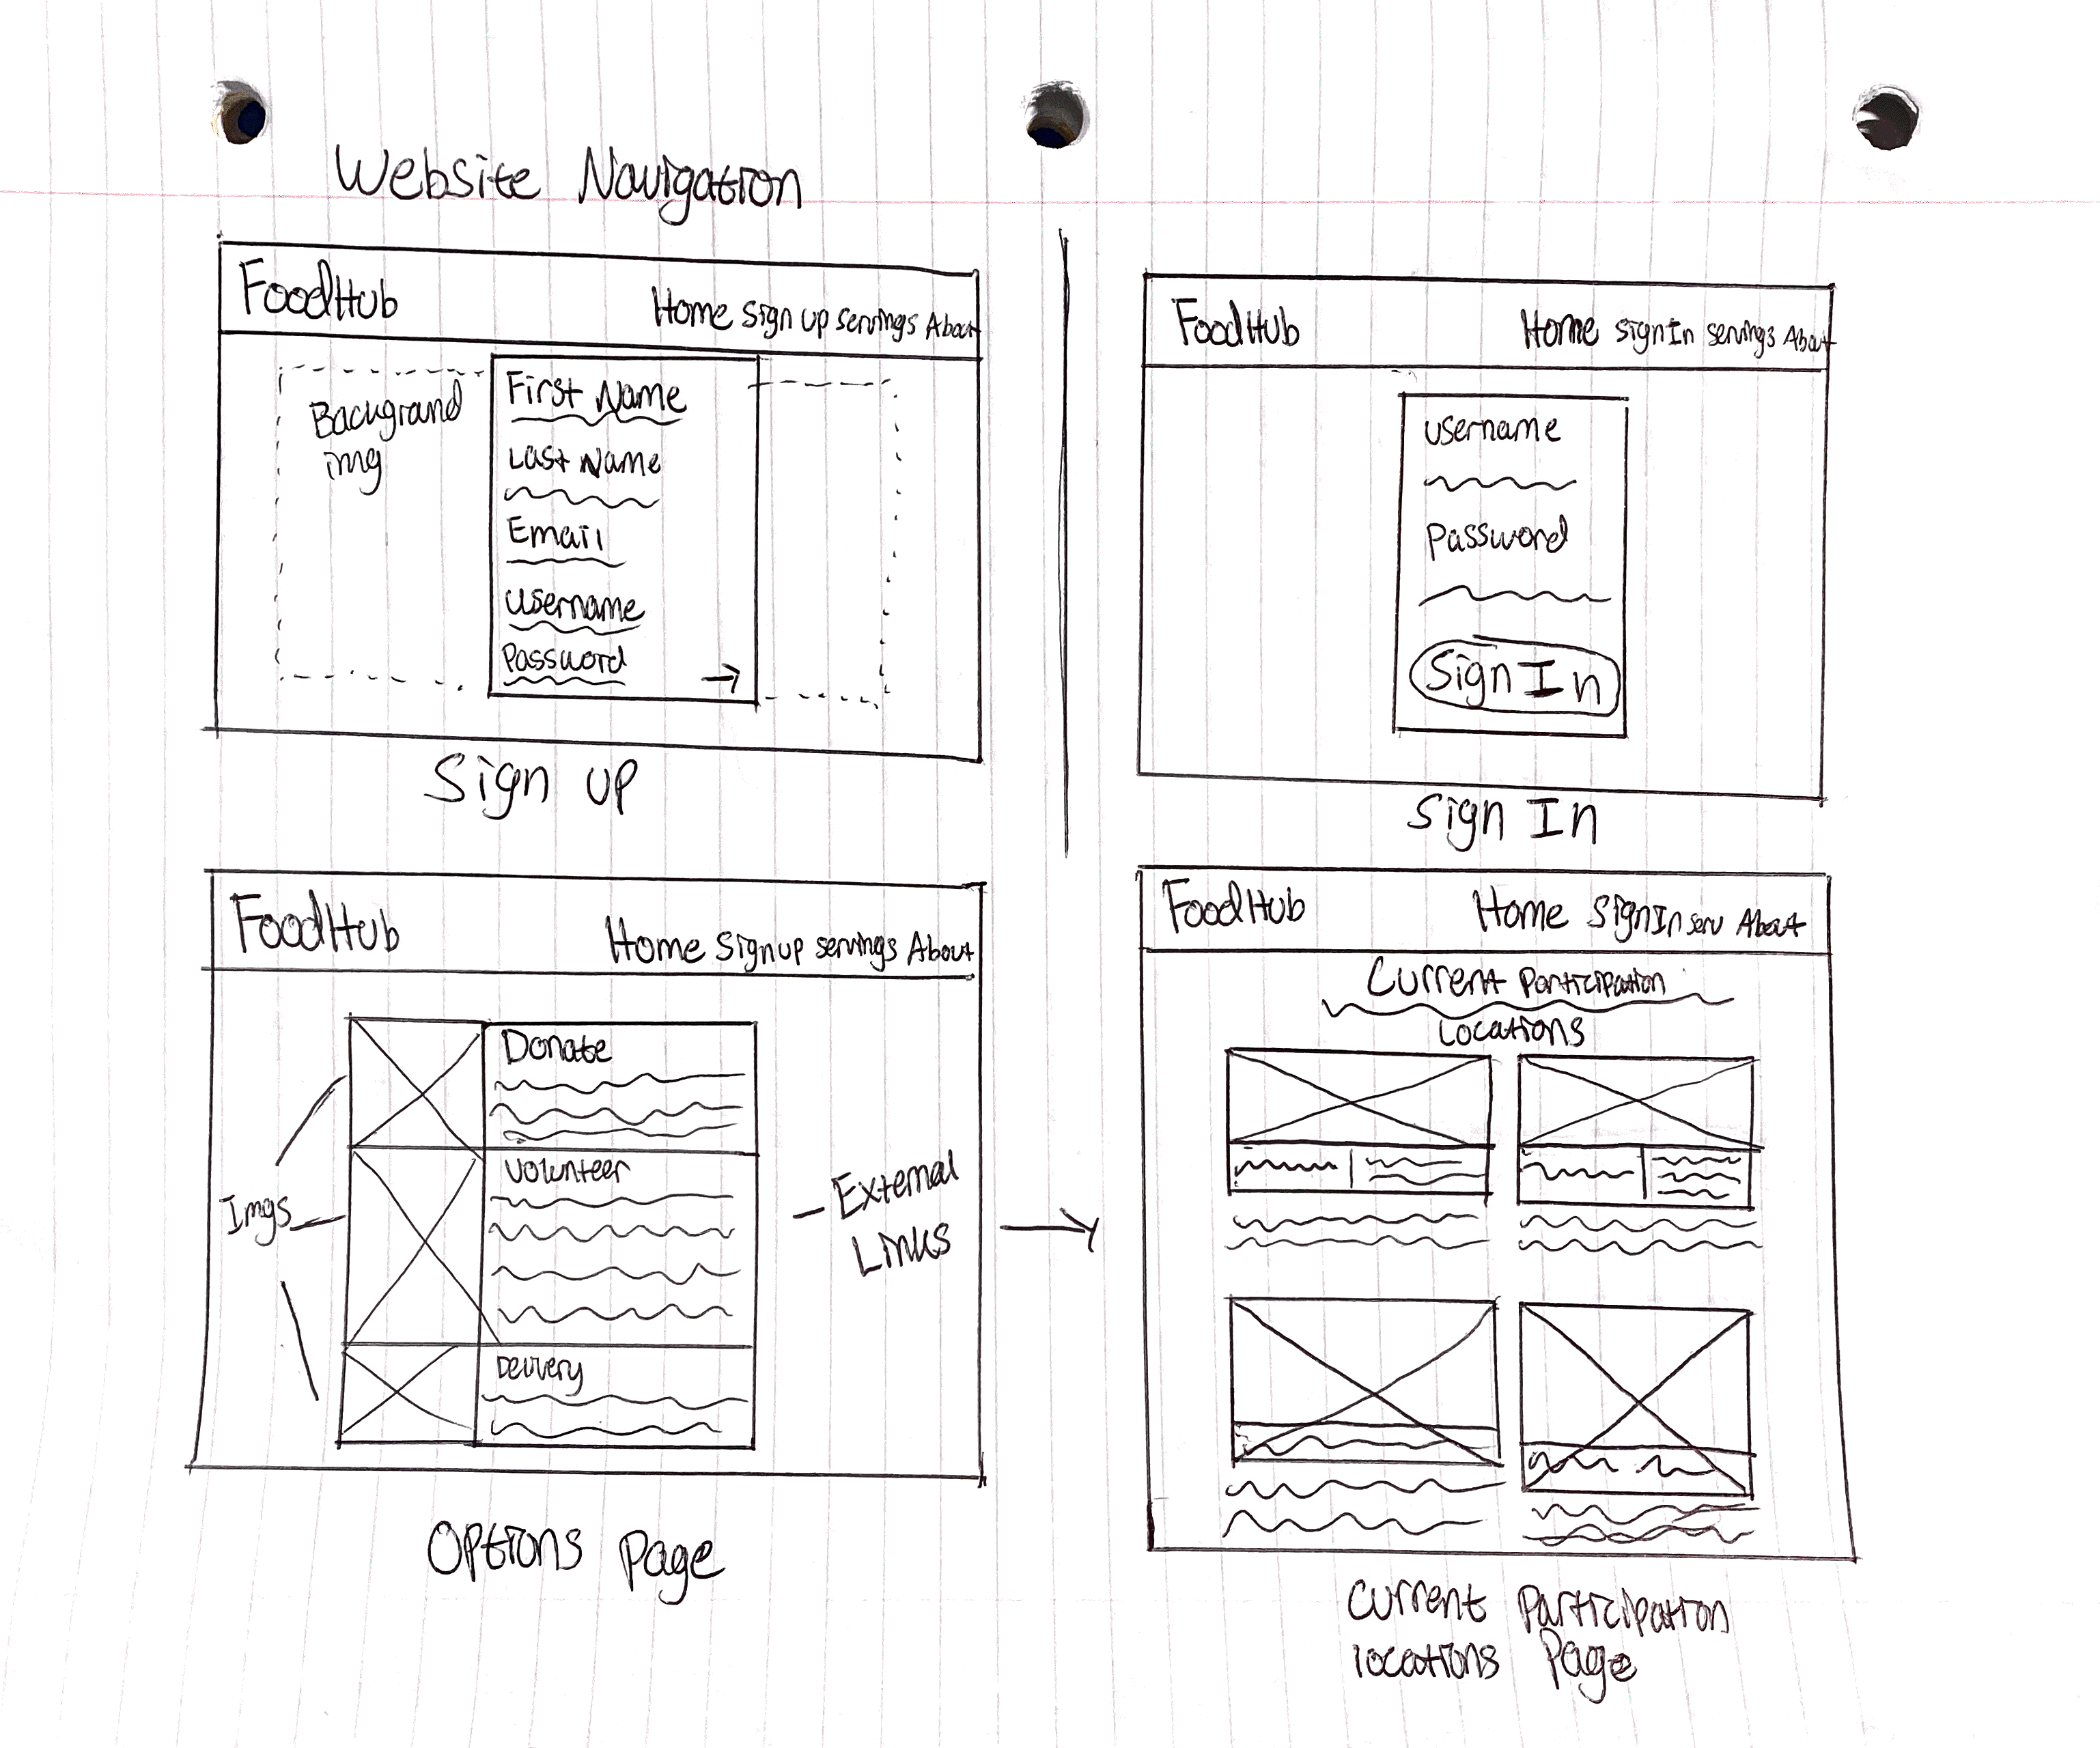 Website Navigation
FoodHub
Home Sign up servings About
Background
img
First Name
Last Name
Email
username
Password
Sign up
FoodHub
Home SignIn servings About
username
Password
Sign In
Sign In
FoodHub
Home Signup servings About
Imgs
Donate
Volunteer
Delivery
External
Links
Options Page
FoodHub
Home SignIn serv About
Current Participation
Locations
Current Participation
locations Page